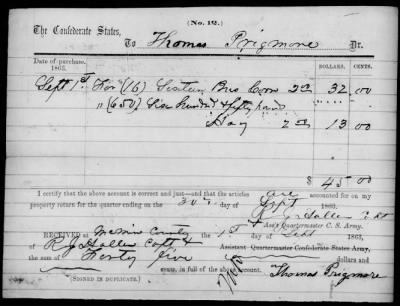 (No. 12.)
The Confederate States,
To Thomas Prigmore Dr.
Date of purchase.
1863.
DOLLARS. CENTS.
Sept 1st For (16) Sixteen Bus Corn 2.00 32 00
" (650) Six hundred & fifty pounds
Hay 2.00 13 00
$ 45 00
I certify that the above account is correct and just—and that the articles are accounted for on my
property return for the quarter ending on the 30th day of Sept 1863.
Ass't Quartermaster C. S. Army.
RECEIVED at McMinn County the 1st of Sept 1863,
of R Capt & Assistant Quartermaster Confederate States Army,
the sum of Forty five dollars and
cents, in full of the above account.
(SIGNED IN DUPLICATE.) Thomas Prigmore